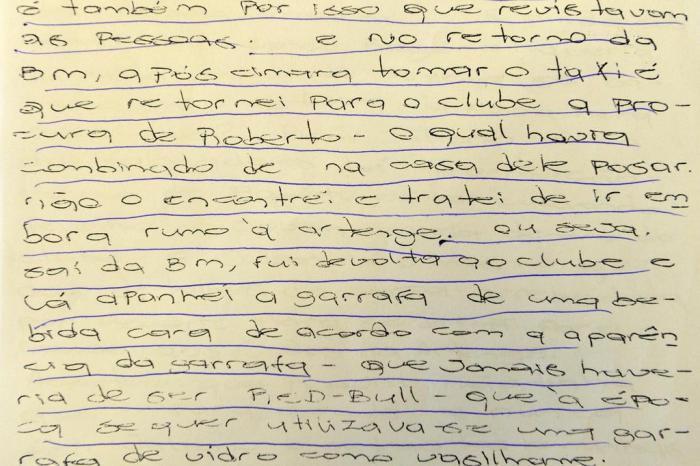 é também por isso que revistavam
as pessoas. e no retorno da
Bm, após cimara tomar o taxi é
que retornei para o clube a pro-
cura de Roberto - o qual havia
combinado de na casa dele posar.
não o encontrei e tratei de ir em
bora rumo à artenge. ou seja,
saí da Bm, fui devolta ao clube e
lá apanhei a garrafa de uma be-
bida cara de acordo com a aparên
cia da garrafa - que jamais have-
ria de ser RED-Bull - que à épo-
ca sequer utilizava-se uma gar-
rafa de vidro como vasilhame.